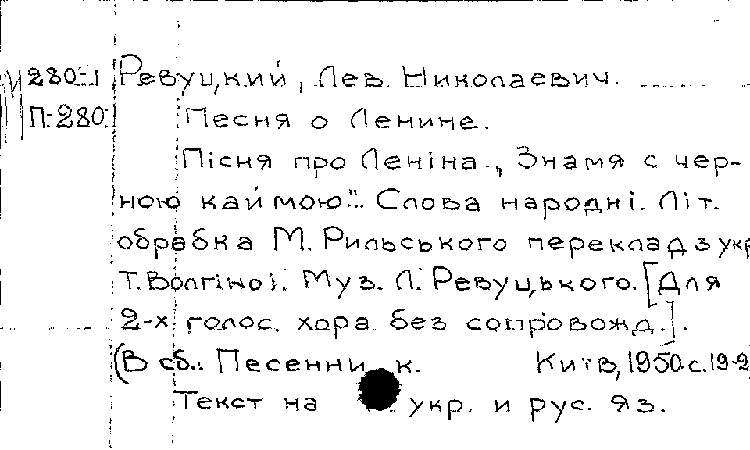 И 280-1 Ревуцкий, Лев. Николаевич.
П-280 Песня о Ленине.
Пісня про Леніна., Знамя с чер-
ною каймою". Слова народні. Літ.
обрабка М. Рильського переклад з укр
Т. Волгіної. Муз. Л. Ревуцького. [Для
2-х голос. хора без сопровожд.].
(В сб.: Песенник. Київ, 1950. с. 19-2
Текст на укр. и рус. яз.